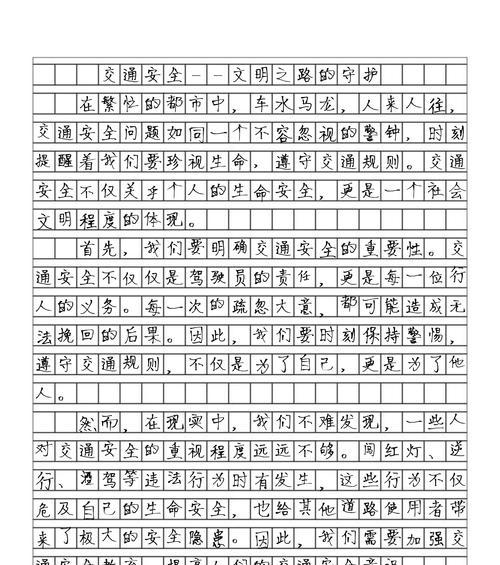 交通安全--文明之路的守护
在繁忙的都市中，车水马龙，人来人往，
交通安全问题如同一个不容忽视的警钟，时刻
提醒着我们要珍视生命，遵守交通规则。交通
安全不仅关乎个人的生命安全，更是一个社会
文明程度的体现。
首先，我们要明确交通安全的重要性。交
通安全不仅仅是驾驶员的责任，更是每一位行
人的义务。每一次的疏忽大意，都可能造成无
法挽回的后果。因此，我们要时刻保持警惕，
遵守交通规则，不仅是为了自己，更是为了他
人。
然而，在现实中，我们不难发现，一些人
对交通安全的重视程度远远不够。闯红灯、逆
行、酒驾等违法行为时有发生，这些行为不仅
危及自己的生命安全，也给其他道路使用者带
来了极大的安全隐患。因此，我们需要加强交
通安全教育，提高人们的交通安全意识